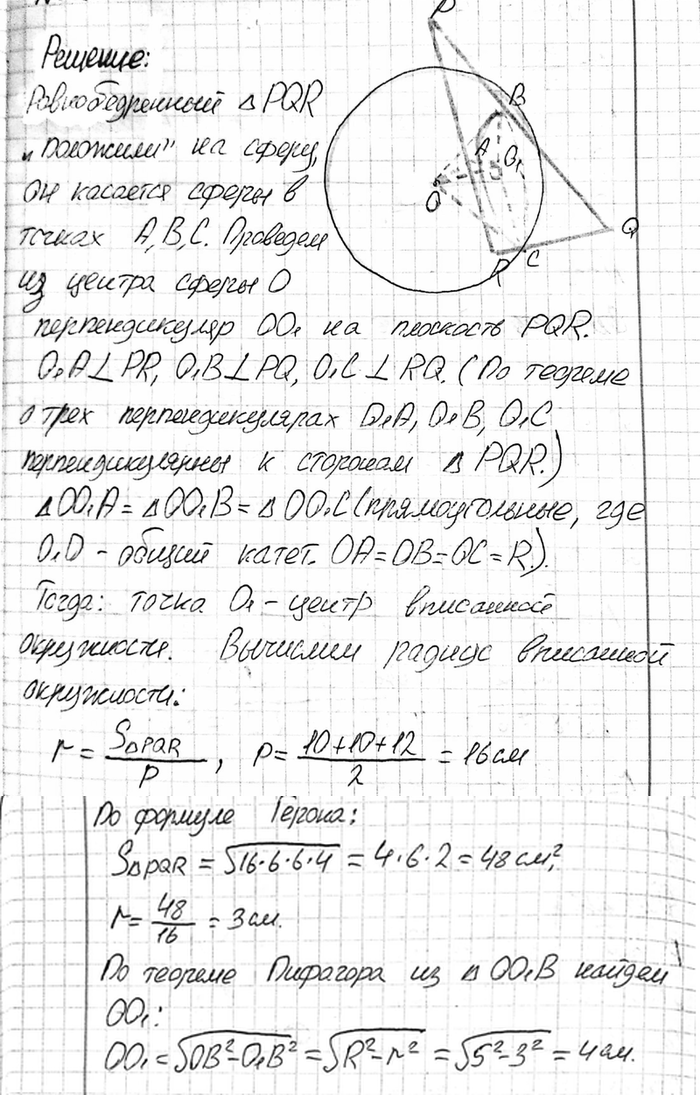 Решение:
Равнобедренный △ PQR
„положили" на сферу,
он касается сферы в
точках A, B, C. Проведем
из центра сферы O
перпендикуляр OO₁ на плоскость PQR.
O₁A⊥PR, O₁B⊥PQ, O₁C⊥RQ. (По теореме
о трех перпендикулярах O₁A, O₁B, O₁C
перпендикулярны к сторонам △ PQR.)
△OO₁A = △OO₁B = △OO₁C (прямоугольные, где
O₁O – общий катет. OA = OB = OC = R.).
Тогда: точка O₁ – центр вписанной
окружности. Вычислим радиус вписанной
окружности:
r = S△PQR / p, p = (10+10+12) / 2 = 16 см
По формуле Герона:
S△PQR = √(16·6·6·4) = 4·6·2 = 48 см²,
r = 48/16 = 3 см.
По теореме Пифагора из △ OO₁B найдем
OO₁:
OO₁ = √(OB²-O₁B²) = √(R²-r²) = √(5²-3²) = 4 см.
P
B
A
O₁
O
Q
R
C